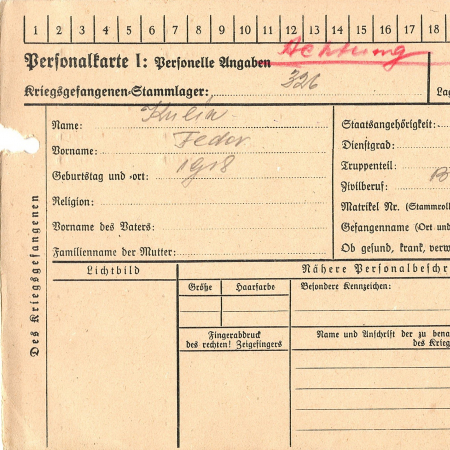 1 2 3 4 5 6 7 8 9 10 11 12 13 14 15 16 17 18
Personalkarte I: Personelle Angaben Achtung
Kriegsgefangenen-Stammlager: 326
Des Kriegsgefangenen
Name:
Vorname: Fedor
Geburtstag und -ort: 1918
Religion:
Vorname des Vaters:
Familienname der Mutter:
Staatsangehörigkeit:
Dienstgrad:
Truppenteil:
Zivilberuf:
Matrikel Nr. (Stammroll
Gefangenname (Ort und
Ob gesund, krank, verw
Lichtbild
Nähere Personalbeschr
Größe Haarfarbe
Besondere Kennzeichen:
Fingerabdruck
des rechten! Zeigefingers
Name und Anschrift der zu bena
des Krieg